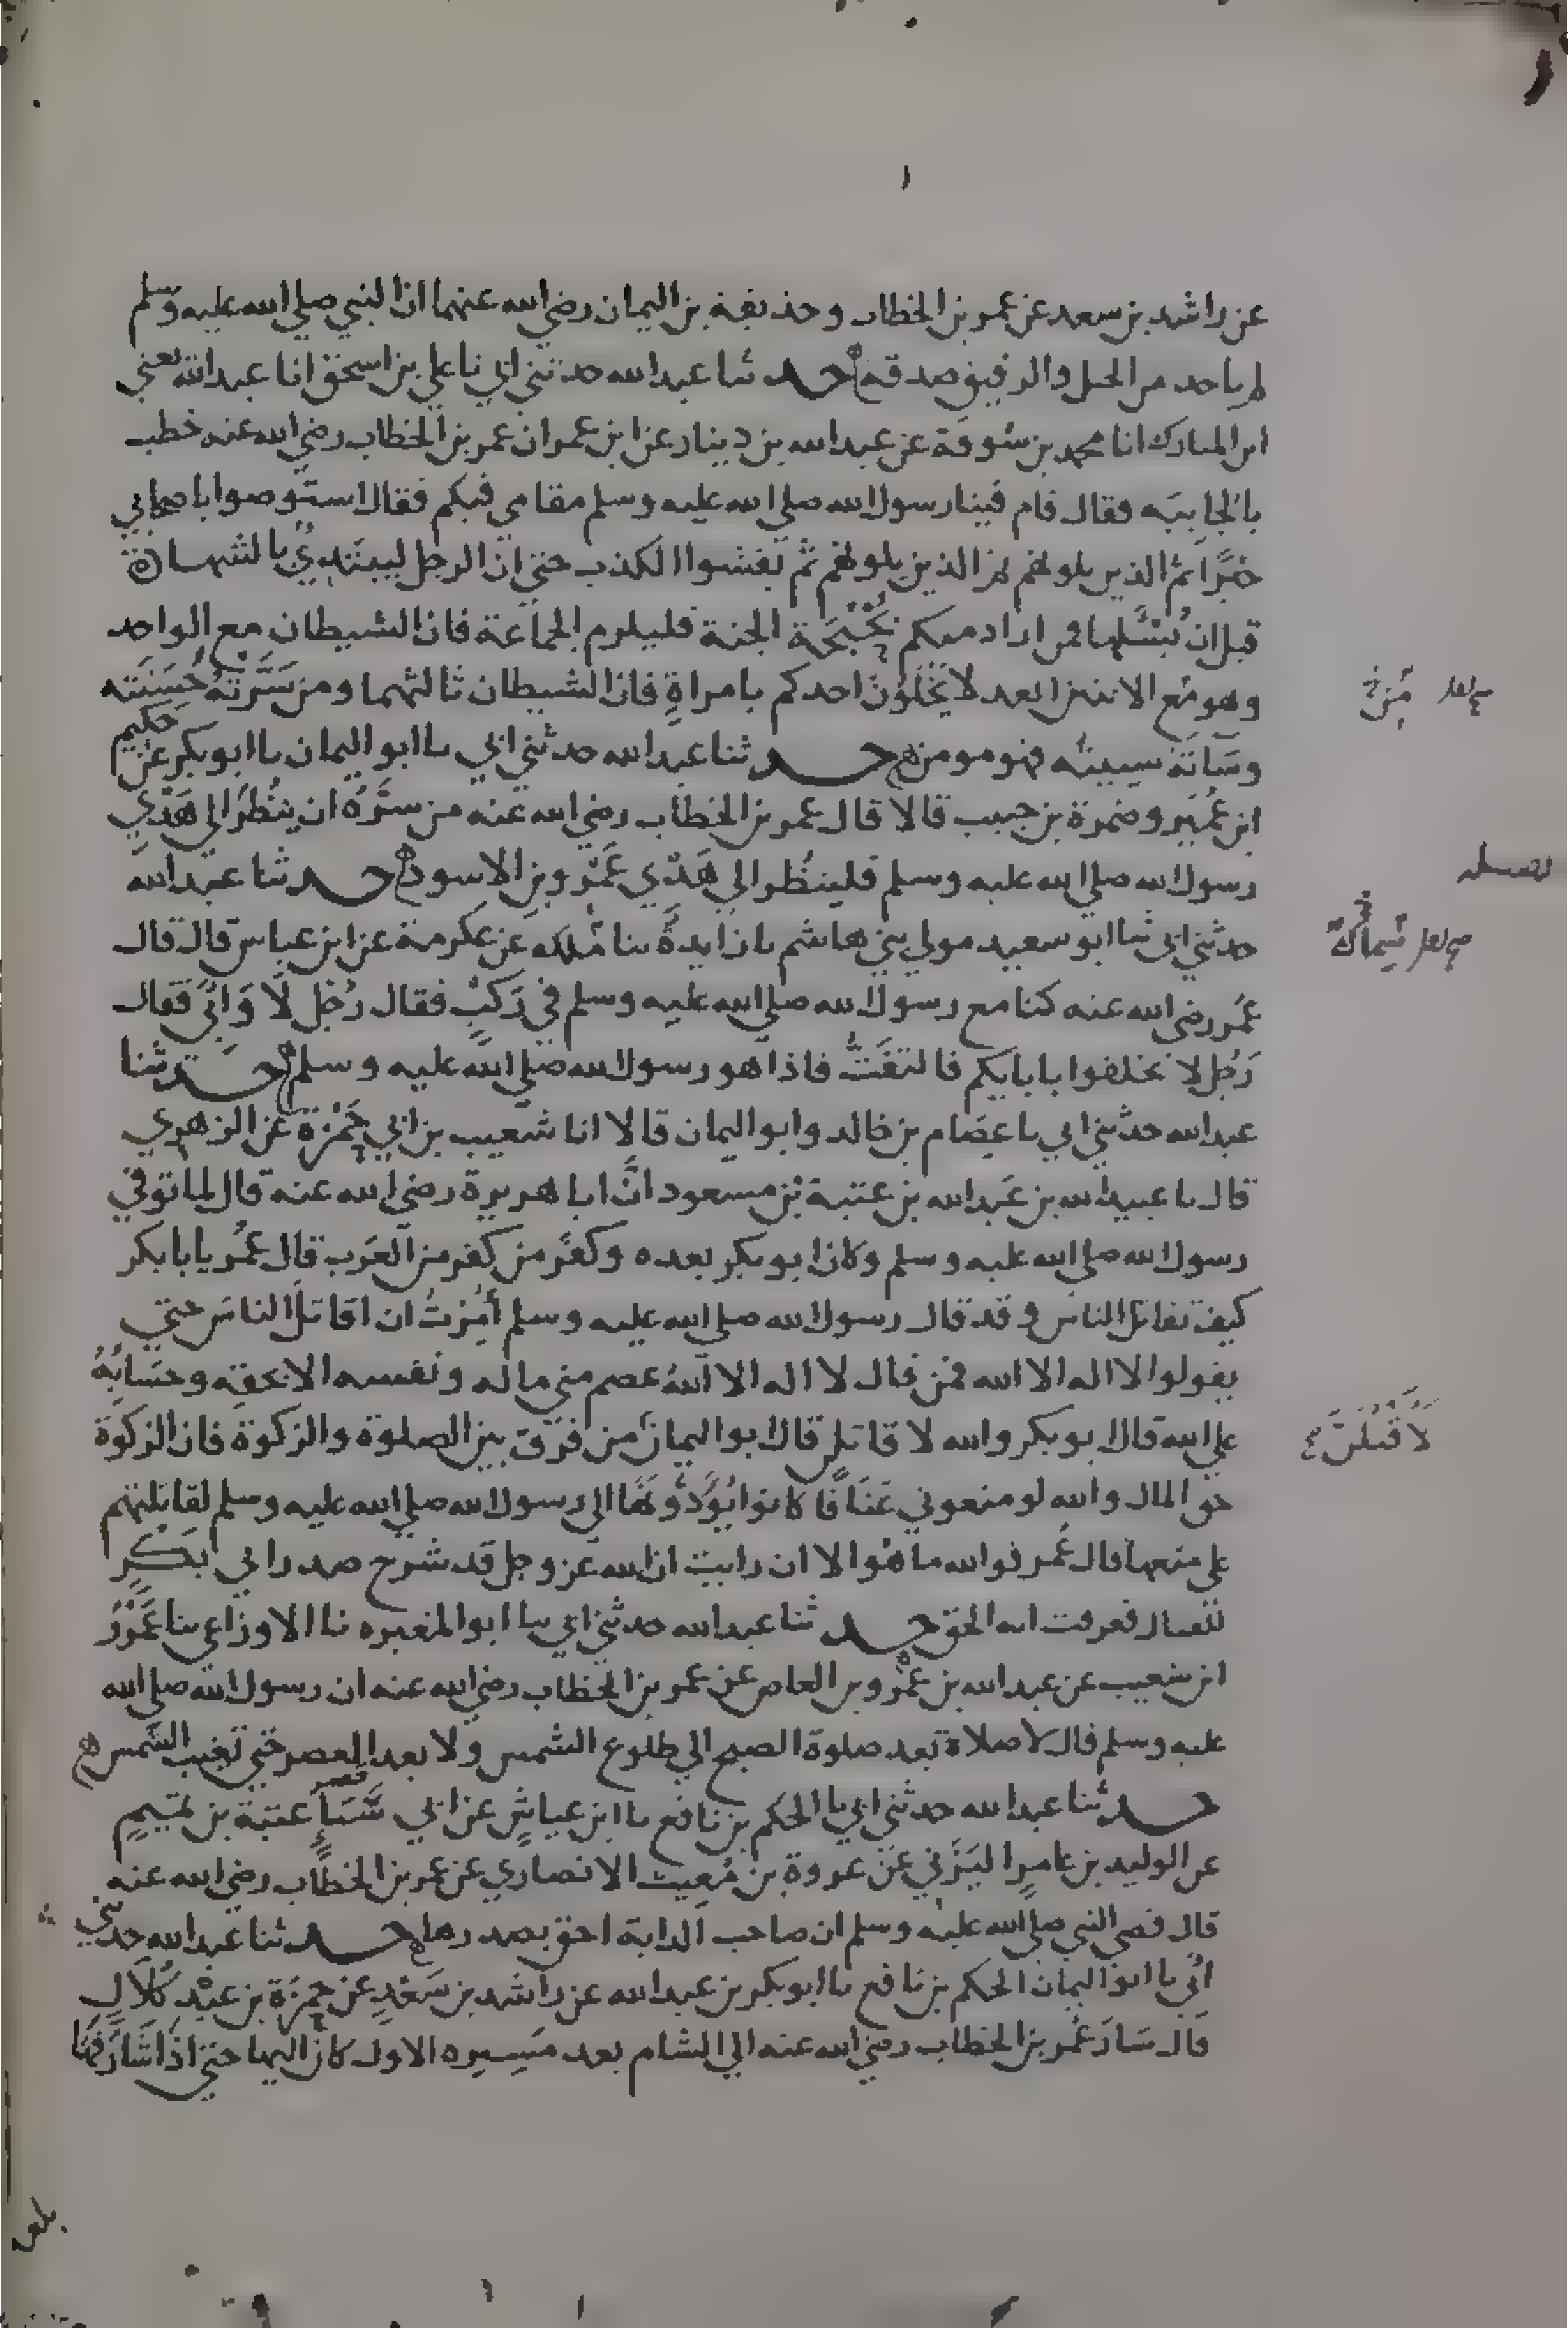 عن راشد بن سعد عن عمر بن الخطاب وحذيفة بن اليمان رضي الله عنهما ان النبي صلى الله عليه وسلم
لم ياخذ من الخيل والرقيق صدقة حدثنا عبد الله حدثني ابي نا علي بن اسحق انا عبد الله يعني
ابن المبارك انا محمد بن سوقة عن عبد الله بن دينار عن ابن عمر ان عمر بن الخطاب رضي الله عنه خطب
بالجابية فقال قام فينا رسول الله صلى الله عليه وسلم مقامي فيكم فقال استوصوا باصحابي
خيرا ثم الذين يلونهم ثم الذين يلونهم ثم يفشوا الكذب حتى ان الرجل ليبتدي بالشهادة
قبل ان يُسئلها فمن اراد منكم بَحْبَحَة الجنة فليلزم الجماعة فان الشيطان مع الواحد
وهو مع الاثنين ابعد لا يَخلُوَنّ احدكم بامراةٍ فان الشيطان ثالثهما ومن سَرَّتْهُ حَسَنَته
وسَاتَه سييته فهو مومن حدثنا عبد الله حدثني ابي نا ابو اليمان نا ابو بكر عن حكيم
ابن عُمَير وضمرة بن حبيب قالا قال عمر بن الخطاب رضي الله عنه من سَرَّهُ ان ينظُرَ الى هَدْي
رسول الله صلى الله عليه وسلم فلينظُر الي هَدْي عَمْرو بن الاسود حدثنا عبد الله
حدثني ابي ثنا ابو سعيد مولي بني هاشم نا زايدة ثنا عن عكرمة عن ابن عباس قال قال
عُمر رضي الله عنه كنا مع رسول الله صلى الله عليه وسلم في رَكبٍ فقال رَجُل لَا وَابي فقال
رَجُل لا تحلفوا بابايكم فالتفَتُّ فاذا هو رسول الله صلى الله عليه وسلم حدثنا
عبد الله حدثني ابي نا عِصَام بن خالد وابو اليمان قالا انا شعيب بن ابي حَمْزة عن الزهري
قال نا عبيد الله بن عَبد الله بن عتبة بن مسعود انَّ ابا هريرة رضي الله عنه قال لما توفي
رسول الله صلى الله عليه وسلم وكان ابو بكر بعده وكفَر من كفر من العَرَب قال عُمر يابا بكر
كيف تقاتل الناس وقد قال رسول الله صلى الله عليه وسلم أُمِرْتُ ان اقاتل الناس حتى
يقولوا لا اله الا الله فمن قال لا اله الا اللهُ عصم مني ماله ونفسه الا بحقِه وحسَابُهُ
على الله قال ابو بكر والله لاقاتلن قال ابو اليمان من فرّق بين الصلوة والزكوة فان الزكوة
حق المال والله لو منعوني عَنَاقًا كانوا يُؤدُونَها الى رسول الله صلى الله عليه وسلم لقاتلتهم
على منعها قال عُمر فوالله ما هُو الا ان رايت ان الله عز وجل قد شرح صدر ابي بَكْرٍ
للقتال فعرفت انه الحق حدثنا عبد الله حدثني ابي ثنا ابو المغيره نا الاوزاعي ثنا عَمْرو
ابن شعيب عن عبد الله بن عَمْرو بن العاص عن عمر بن الخطاب رضي الله عنه ان رسول الله صلى الله
عليه وسلم قال لا صلاة بَعد صلوة الصبح الي طلوع الشمس ولا بعد العصر حتى تغيب الشمس
حدثنا عبد الله حدثني ابي نا الحكم بن نافع نا ابن عياشٍ عن ابي سَبَأٍ عتبة بن تميمٍ
عن الوليد بن عامرٍ اليَزَني عن عروة بن مُغيث الانصاري عن عمر بن الخطاب رضي الله عنه
قال قضى النبي صلى الله عليه وسلم ان صاحب الدابة احق بصدرها حدثنا عبد الله حدثني
ابي نا ابو اليمان الحكم بن نافع نا ابو بكر بن عبد الله عن راشد بن سَعْدٍ عن حمزة بن عَبْد كُلَالٍ
قال سَارَ عُمر بن الخطاب رضي الله عنه الي الشام بعد مَسِيره الاول كان اليها حتى اذا شَارَفَها
سماك
لَأُقَتِلَنَّ
بلغ